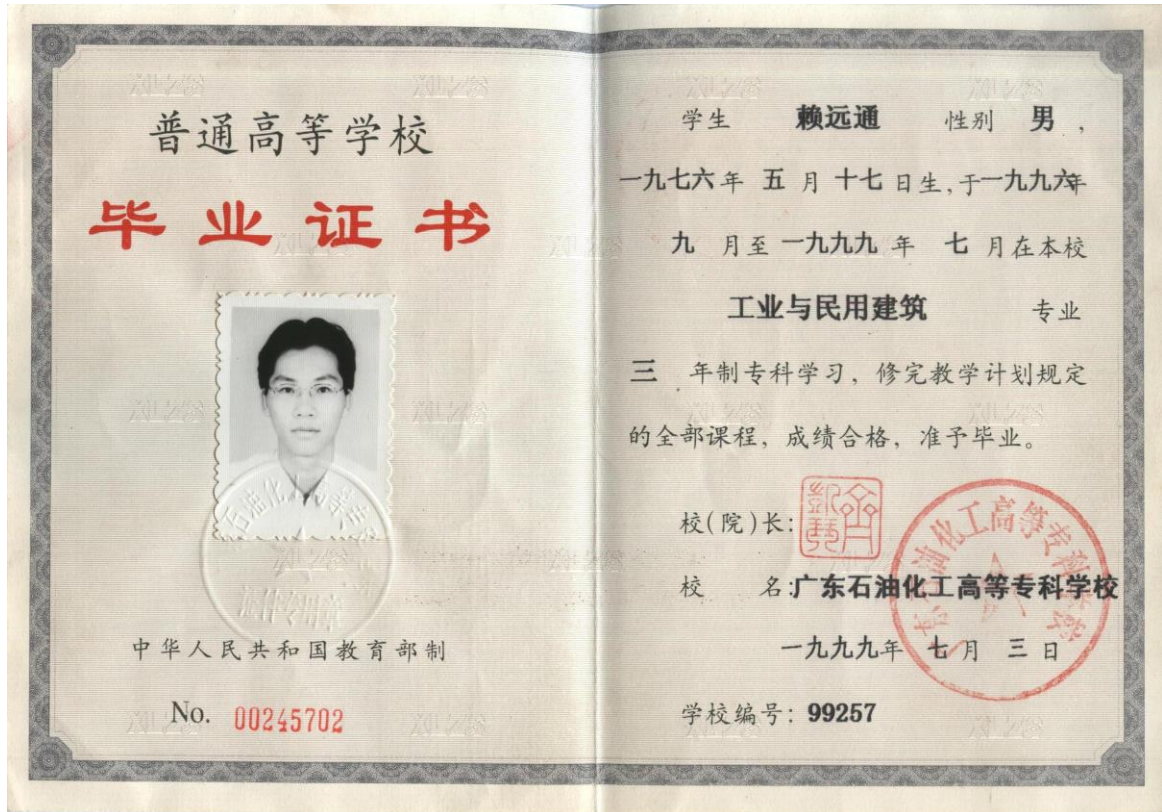 普通高等学校
毕业证书
中华人民共和国教育部制
No. 00245702
学生 赖远通 性别 男，
一九七六年 五 月 十七 日生，于一九九六年
九 月至 一九九九 年 七 月在本校
工业与民用建筑 专业
三 年制专科学习，修完教学计划规定
的全部课程，成绩合格，准予毕业。
校(院)长：
校 名：广东石油化工高等专科学校
一九九九年 七月 三 日
学校编号：99257